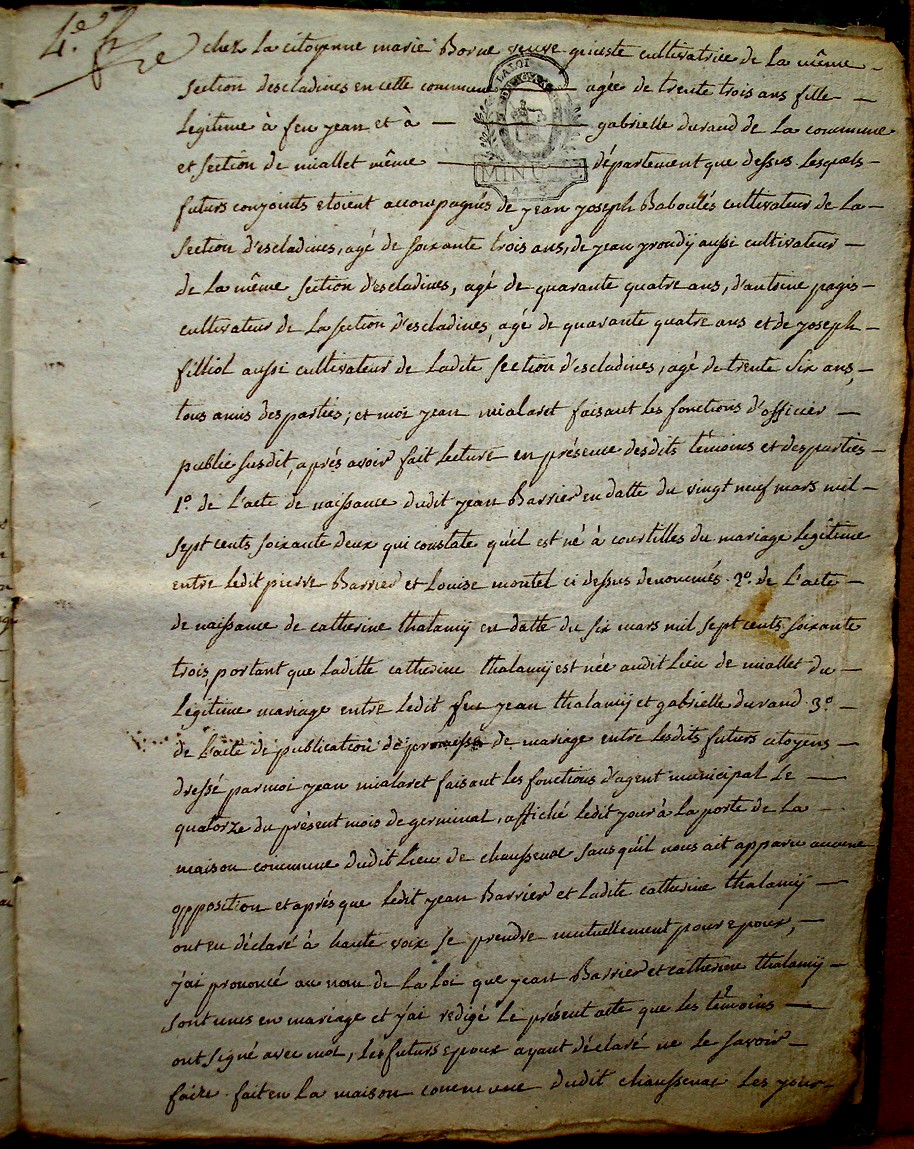 4.e
chez La citoyenne marie Borne veuve cultivatrice de La même
section descladines en cette commune agée de trente trois ans fille
Legitime à feu jean et à gabrielle durand de La commune
et section de miallet même département que dessus Lesquels
LA LOI
MINUTE
futurs conjoints etoient accompagnés de jean joseph Baboulés cultivateur de La
section d'escladines, agé de soixante trois ans, de jean aussi cultivateur
de La même section d'escladines, agé de quarante quatre ans, d'antoine pagis
cultivateur de La section d'escladines, agé de quarante quatre ans et de joseph
filliol aussi cultivateur de Ladite section d'escladines, agé de trente six ans,
tous amis des parties; et moi jean mialaret faisant Les fonctions d'officier
public susdit, aprés avoir fait Lecture en présence desdits témoins et des parties
1.º de L'acte de naissance dudit jean Barrier en datte du vingt neuf mars mil
sept cents soixante deux qui constate qu'il est né à courtilles du mariage Legitime
entre Ledit pierre Barrier et Louise montel ci dessus denommés. 2.º de L'acte
de naissance de catherine thalamÿ en datte du six mars mil sept cents soixante
trois, portant que Laditte catherine thalamÿ est née audit Lieu de miallet du
Legitime mariage entre Ledit feu jean thalamÿ et gabrielle durand. 3.º
de L'acte de publication de promesse de mariage entre Lesdits futurs citoyens
dressé par moi jean mialaret faisant Les fonctions d'agent municipal Le
quatorze du présent mois de germinal, affiché Ledit jour à La porte de La
maison commune dudit Lieu de chaussenac sans qu'il nous ait apparu aucune
opposition et aprés que Ledit jean Barrier et Ladite catherine thalamÿ
ont eu déclaré à haute voix se prendre mutuellement pour epoux,
j'ai prononcé au nom de La Loi que jean Barrier et catherine thalamÿ
sont unis en mariage et j'ai redigé Le présent acte que Les témoins
ont signé avec moi, Les futurs epoux ayant déclaré ne Le savoir
faire. fait en La maison commune dudit chaussenac Les jour